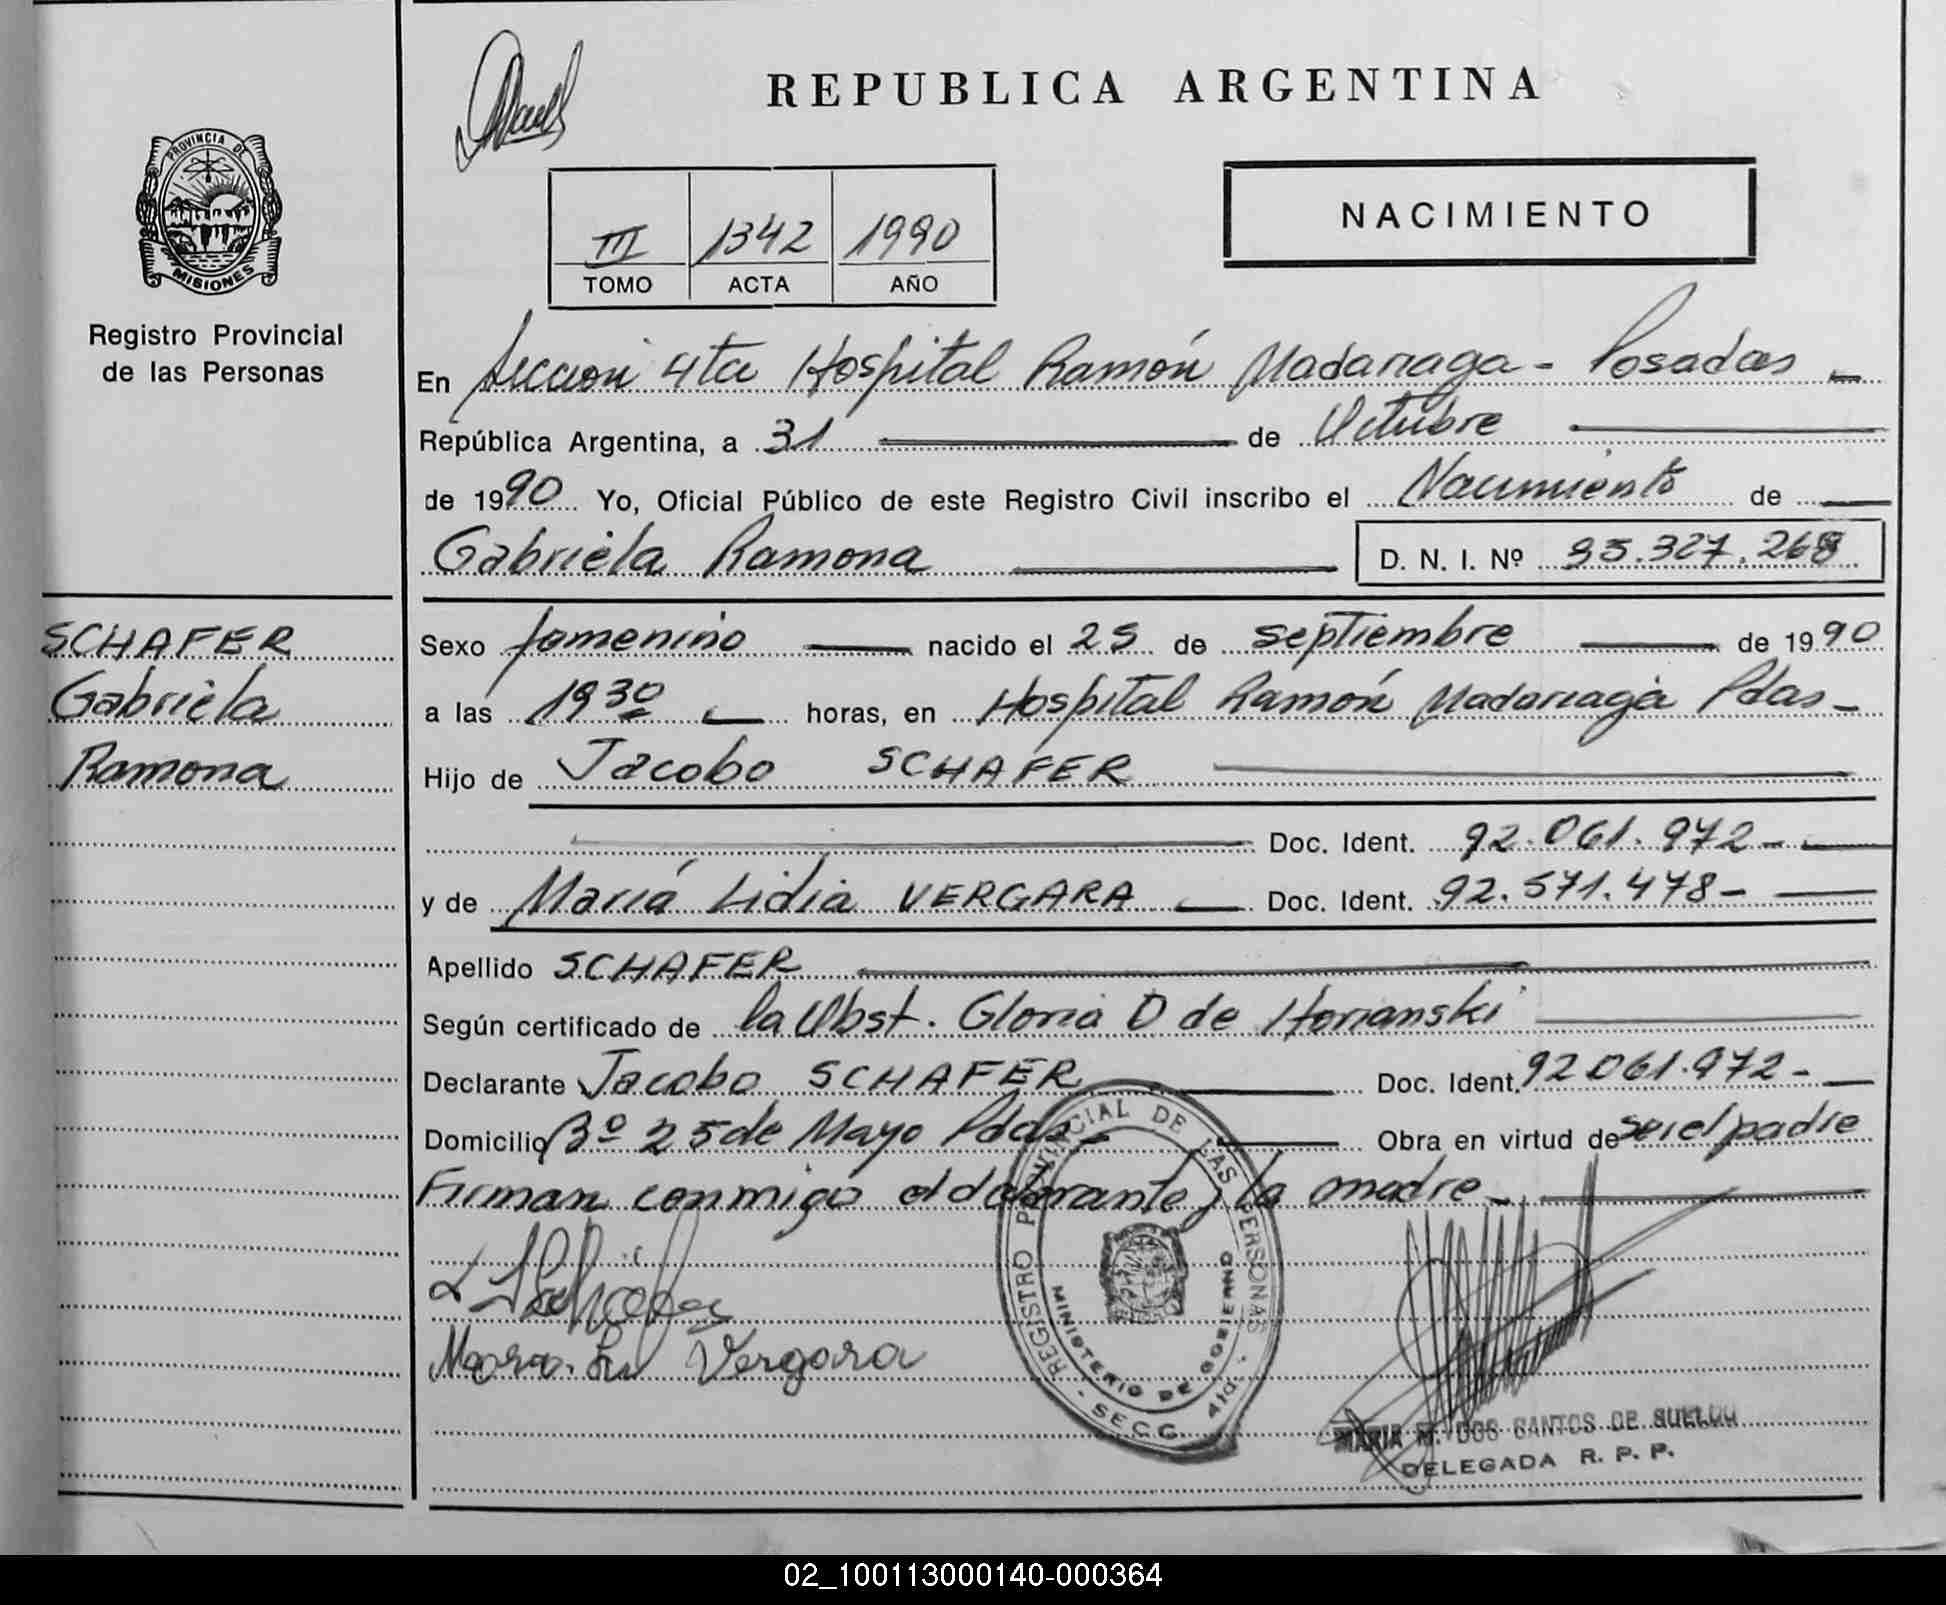 REPUBLICA ARGENTINA
PROVINCIA DE
MISIONES
Registro Provincial
de las Personas
NACIMIENTO
III 1342 1990
TOMO ACTA AÑO
En Sección 4ta Hospital Ramón Madariaga - Posadas -
República Argentina, a 31 de Octubre
de 1990 Yo, Oficial Público de este Registro Civil inscribo el Nacimiento de
Gabriela Ramona D. N. I. Nº 35.327.268
SCHAFER
Gabriela
Ramona
Sexo femenino nacido el 25 de septiembre de 1990
a las 19 30 horas, en Hospital Ramón Madariaga Pdas -
Hijo de Jacobo SCHAFER
Doc. Ident. 92.061.972 -
y de María Lidia VERGARA Doc. Ident. 92.571.478 -
Apellido SCHAFER
Según certificado de la Obst. Gloria D de Horianski
Declarante Jacobo SCHAFER Doc. Ident. 92061.972 -
Domicilio Bº 25 de Mayo Pdas - Obra en virtud de ser el padre
Firman conmigo el declarante y la madre -
Vergara
REGISTRO PROVINCIAL DE LAS PERSONAS
MINISTERIO DE GOBIERNO
- SECC. 4ta. -
MARIA M. DOS SANTOS DE
DELEGADA R. P. P.
02_100113000140-000364